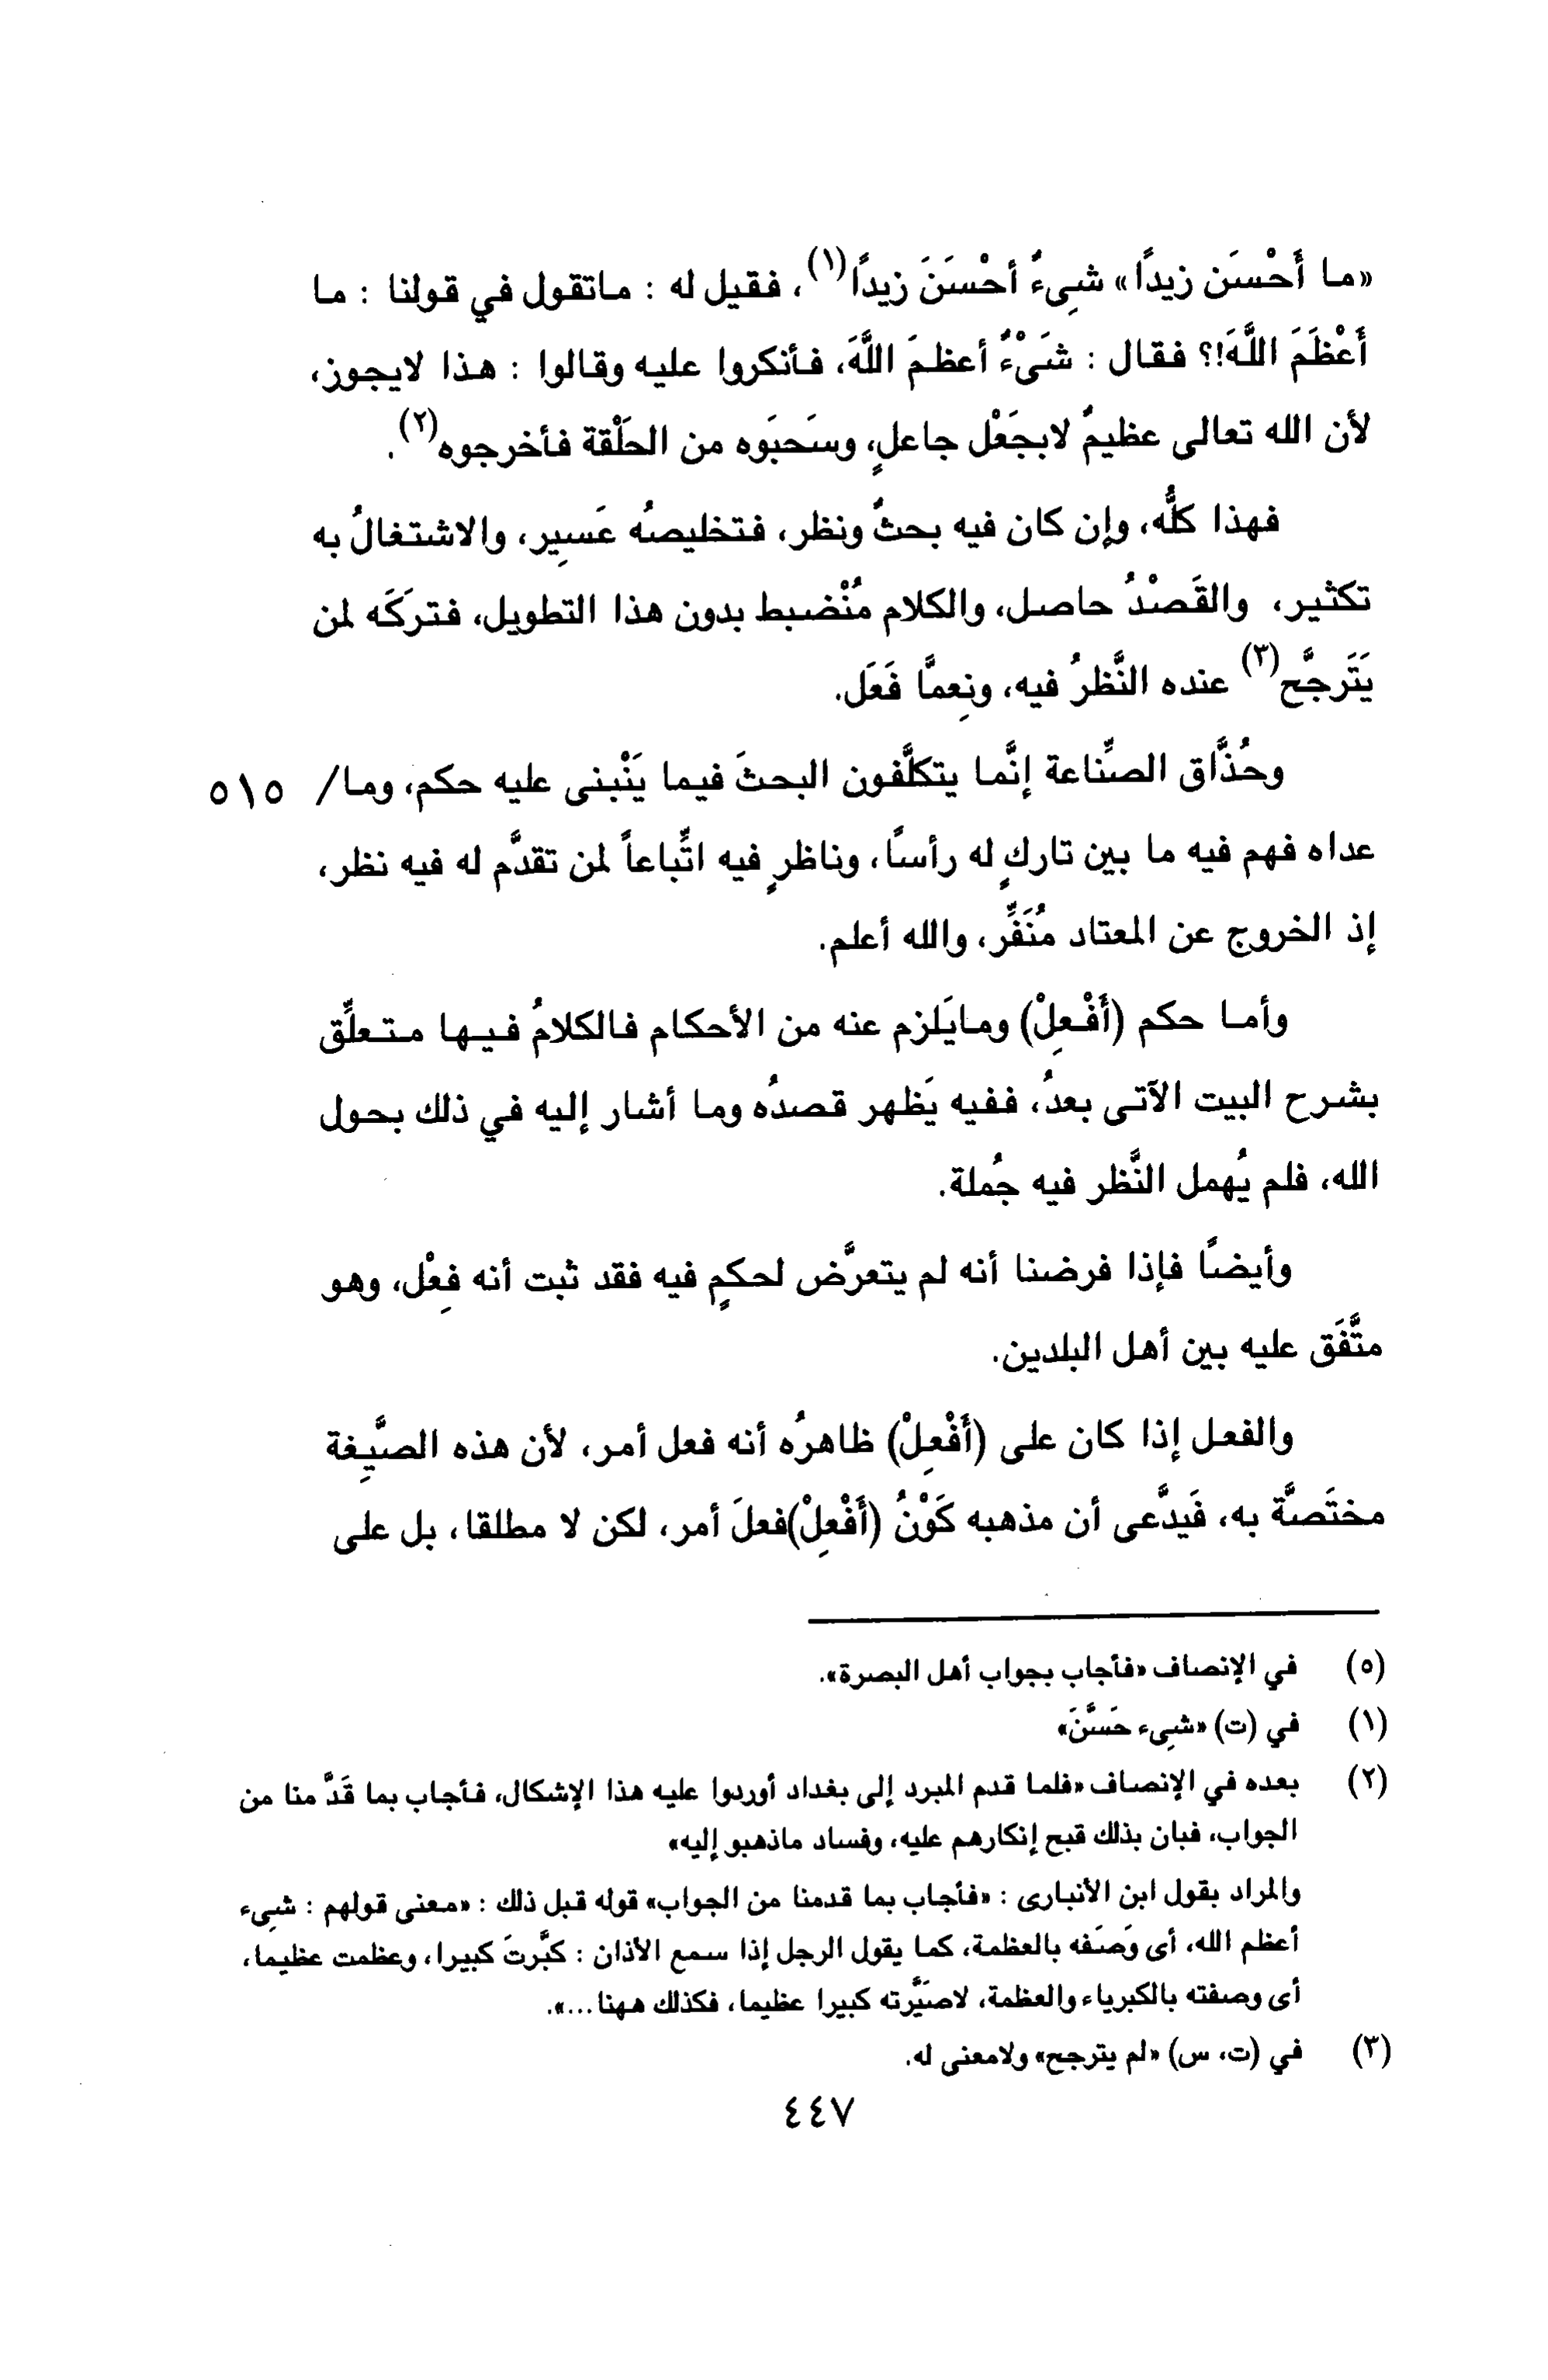 «ما أَحْسَن زيداً» شىءٌ أحْسَنَ زيداً(١)، فقيل له : ماتقول في قولنا : ما
أَعْظَمَ اللَّهَ!؟ فقال : شَىْءٌ أعظمَ اللَّهَ، فأنكروا عليه وقالوا : هذا لايجوز،
لأن الله تعالى عظيمٌ لابجَعْل جاعلٍ، وسَحبَوه من الحلَقْة فأخرجوه(٢).
فهذا كلُّه، وإن كان فيه بحثٌ ونظر، فتخليصهُ عَسِير، والاشتغالُ به
تكثير، والقَصْدُ حاصل، والكلام مُنْضبط بدون هذا التطويل، فتركَه لمن
يَتَرجَّح(٣) عنده النَّظرُ فيه، ونِعمَّا فَعَل.
وحُذَّاق الصِّناعة إنَّما يتكلَّفون البحثَ فيما يَنْبنى عليه حكم، وما/ ٥١٥
عداه فهم فيه ما بين تاركٍ له رأساً، وناظرٍ فيه اتِّباعاً لمن تقدَّم له فيه نظر،
إذ الخروج عن المعتاد مُنَفِّر، والله أعلم.
وأما حكم (أَفْعِلْ) ومايَلزم عنه من الأحكام فالكلامُ فيها متعلِّق
بشرح البيت الآتى بعدُ، ففيه يَظهر قصدُه وما أشار إليه في ذلك بحول
الله، فلم يُهمل النَّظر فيه جُملة.
وأيضاً فإذا فرضنا أنه لم يتعرَّض لحكمٍ فيه فقد ثبت أنه فِعْل، وهو
متَّفَق عليه بين أهل البلدين.
والفعل إذا كان على (أَفْعِلْ) ظاهرُه أنه فعل أمر، لأن هذه الصِّيغة
مختَصَّة به، فَيدَّعى أن مذهبه كَوْنُ (أَفْعِلْ)فعلَ أمر، لكن لا مطلقا، بل على
(٥) في الإنصاف «فأجاب بجواب أهل البصرة».
(١) في (ت) «شىء حَسَّنَ»
(٢) بعده في الإنصاف «فلما قدم المبرد إلى بغداد أوردوا عليه هذا الإشكال، فأجاب بما قَدَّمنا من
الجواب، فبان بذلك قبح إنكارهم عليه، وفساد ماذهبو إليه»
والمراد بقول ابن الأنبارى : «فأجاب بما قدمنا من الجواب» قوله قبل ذلك : «معنى قولهم : شىء
أعظم الله، أى وَصَفه بالعظمة، كما يقول الرجل إذا سمع الأذان : كبَّرتَ كبيرا، وعظمت عظيما،
أى وصفته بالكبرياء والعظمة، لاصَيَّرته كبيرا عظيما، فكذلك ههنا...».
(٣) في (ت، س) «لم يترجح» ولامعنى له.
٤٤٧